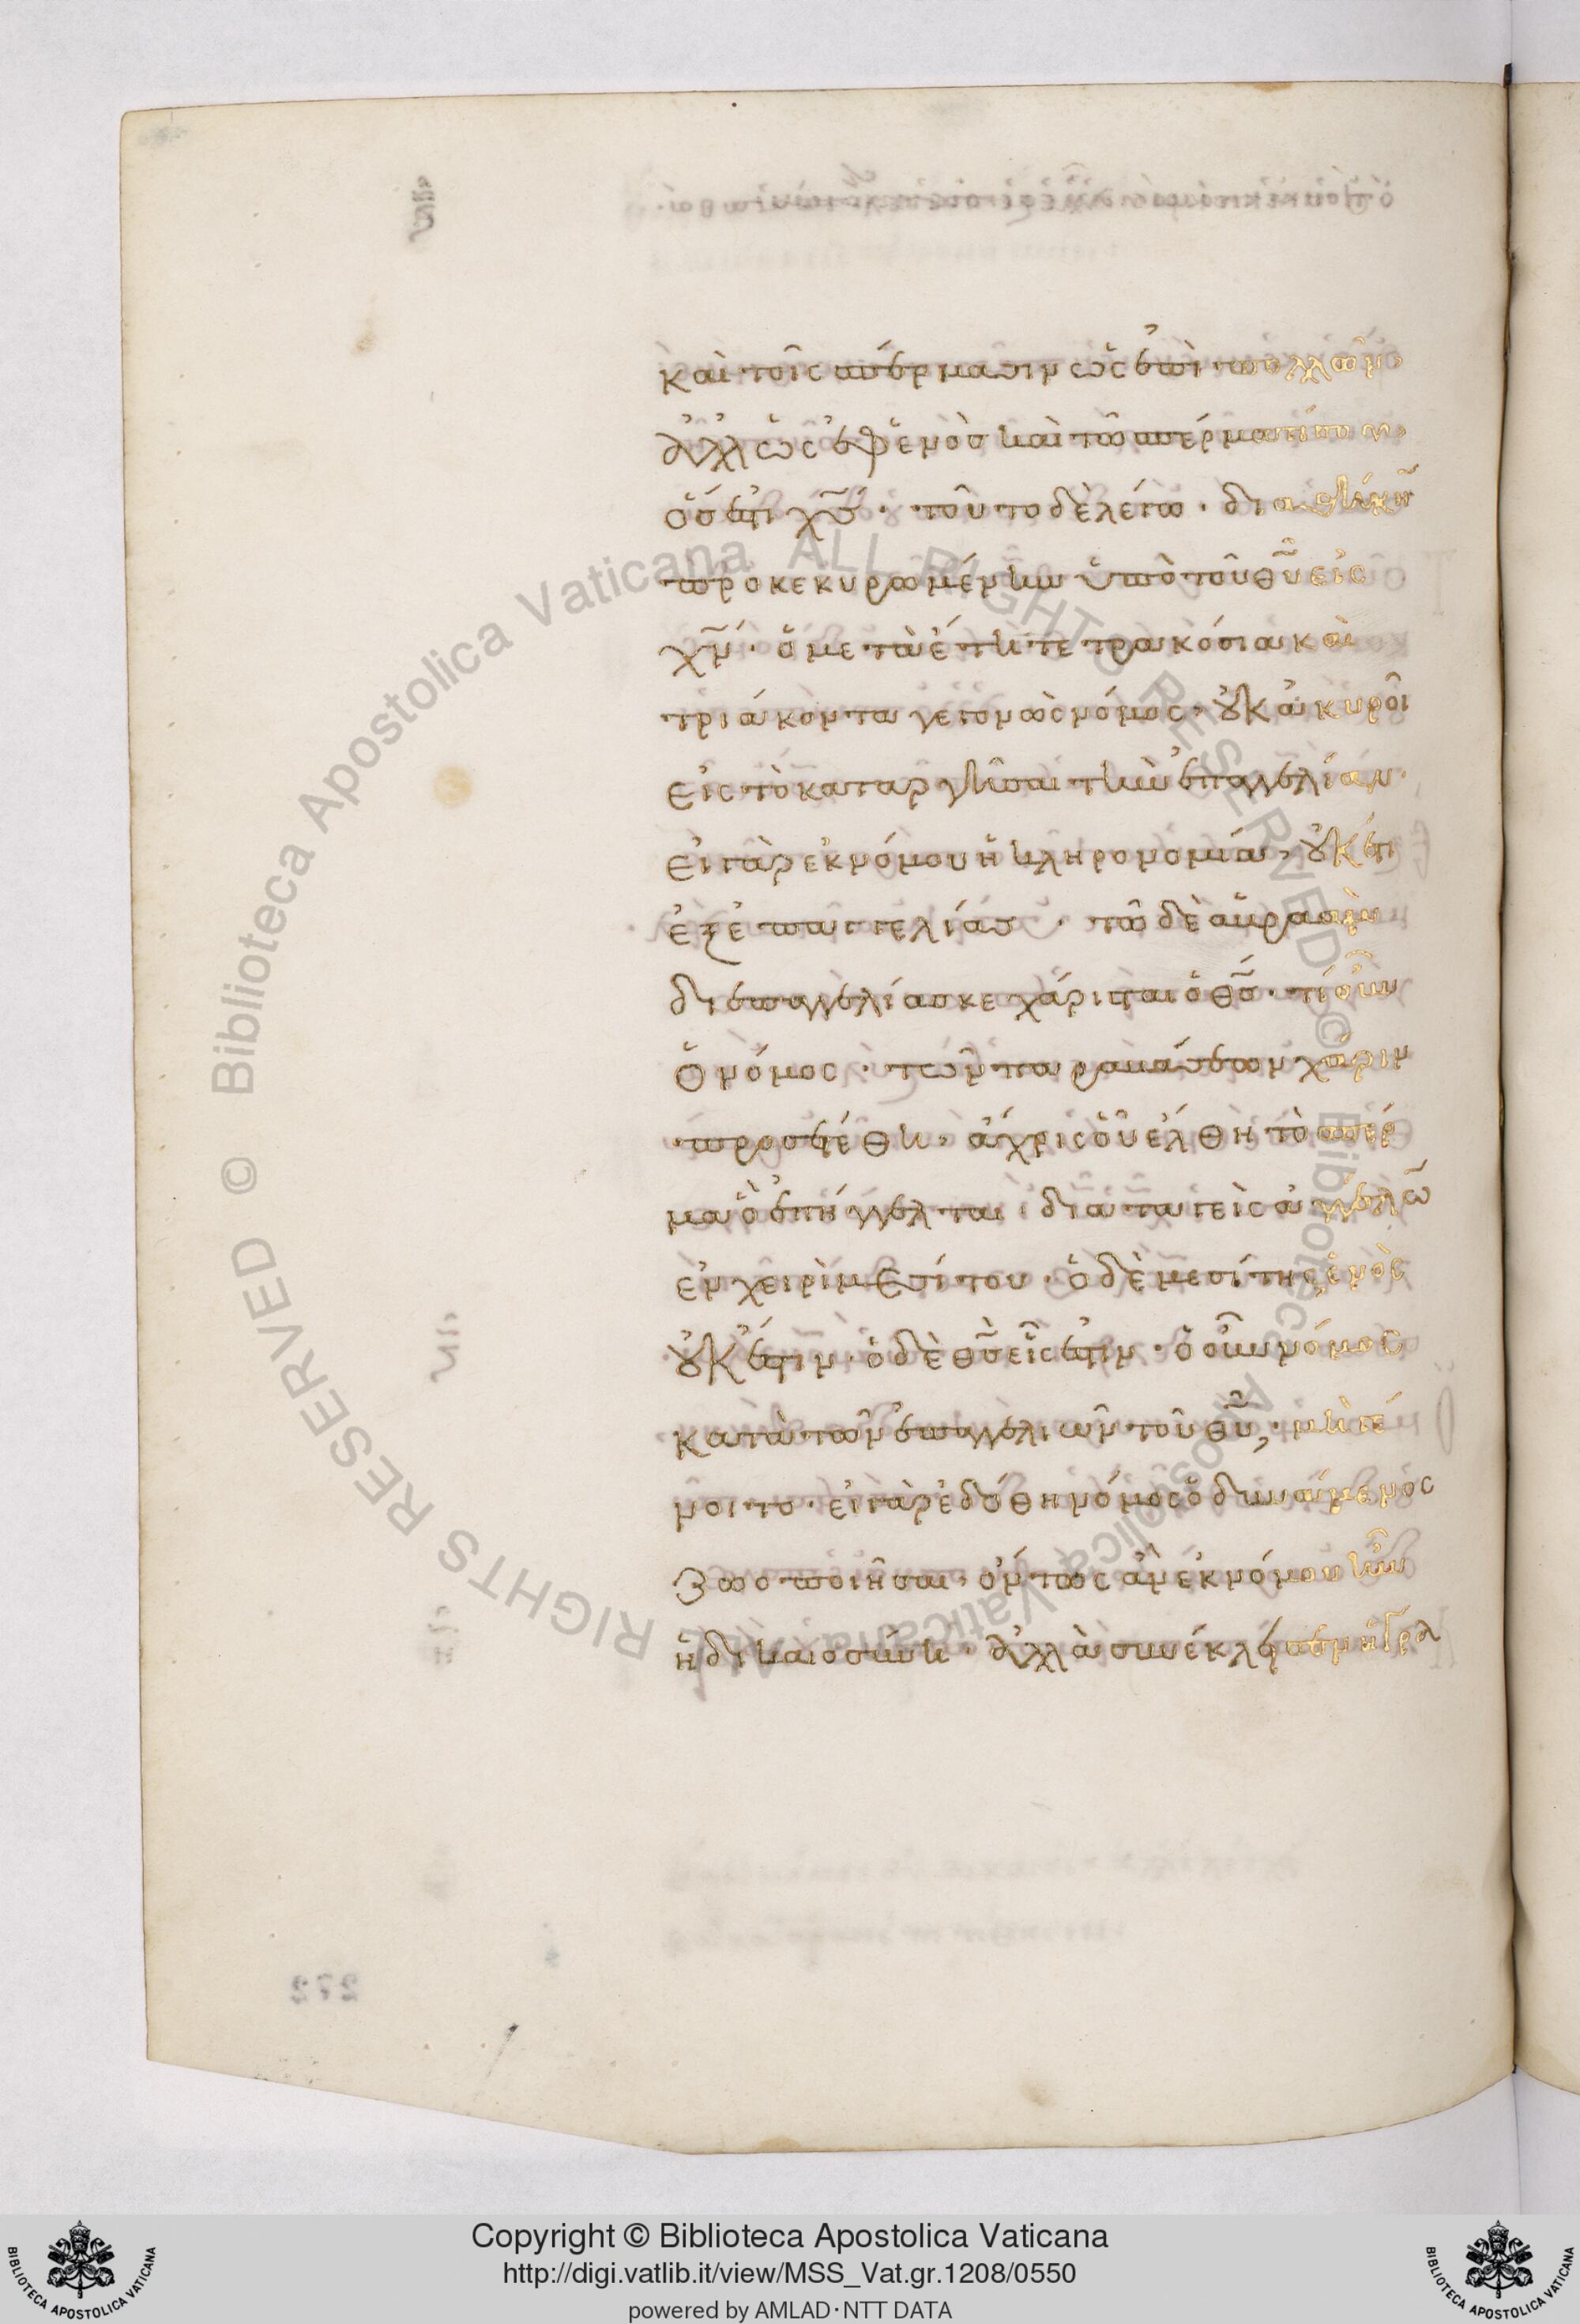 καὶ τοῖς σπέρμασιν ὡς ἐπὶ πολλῶν·
ἀλλ' ὡς ἐφ' ἑνὸς καὶ τῶ σπέρματί σου·
ὅς ἐστι χς· τοῦτο δὲ λέγω· διαθήκην
προκεκυρωμένην ὑπὸ τοῦ θυ εἰς
χν· ὁ μετὰ ἔτη τετρακόσια καὶ
τριάκοντα γεγονὼς νόμος, οὐκ ἀκυροῖ
εἰς τὸ καταργῆσαι τὴν ἐπαγγελίαν·
εἰ γὰρ ἐκ νόμου ἡ κληρονομία, οὐκέτι
ἐξ ἐπαγγελίας· τῶ δὲ ἀβραὰμ
δι' ἐπαγγελίας κεχάρισται ὁ θς· τί οὖν
ὁ νόμος· τῶν παραβάσεων χάριν
προσετέθη, ἄχρις οὗ ἔλθη τὸ σπέρ
μα ὃ ἐπήγγελται διαταγεὶς δι' ἀγγέλων
ἐν χειρὶ μεσίτου· ὁ δὲ μεσίτης ἑνὸς
οὐκ ἔστιν· ὁ δὲ θς εἷς ἐστιν· ὁ οὖν νόμος
κατὰ τῶν ἐπαγγελιῶν τοῦ θυ, μὴ γέ
νοιτο· εἰ γὰρ ἐδόθη νόμος ὁ δυνάμενος
ζωοποιῆσαι, ὄντως ἂν ἐκ νόμου ἦν
ἡ δικαιοσύνη· ἀλλὰ συνέκλεισεν ἡ γρα
Copyright © Biblioteca Apostolica Vaticana
http://digi.vatlib.it/view/MSS_Vat.gr.1208/0550
powered by AMLAD·NTT DATA